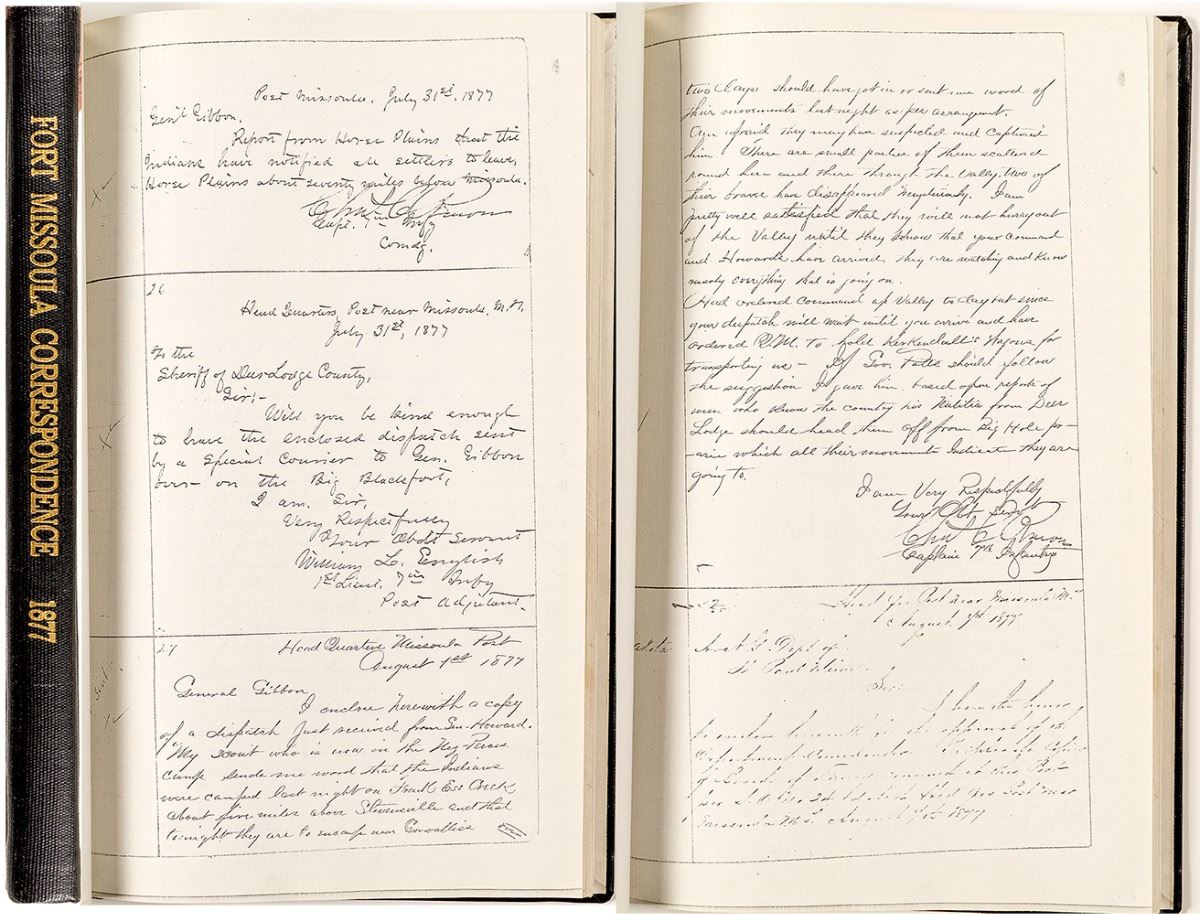 FORT MISSOULA CORRESPONDENCE 1877
Post Missoula, July 31st, 1877
Gen'l Gibbon.
Report from Horse Plains that the
Indians have notified all settlers to leave,
Horse Plains about seventy miles below Missoula.
Capt. 7th Infy
Comdg.
26
Head Quarters, Post near Missoula, M.T.
July 31st, 1877
To the
Sheriff of Deer Lodge County,
Sir;-
Will you be kind enough
to have the enclosed dispatch sent
by a Special Courier to Gen. Gibbon
over on the Big Blackfoot,
I am, Sir,
Very Respectfully
Your Obdt Servant
William L. English
1st Lieut. 7th Infy
Post Adjutant.
27
Head Quarters Missoula Post
August 1st 1877
General Gibbon
I enclose herewith a copy
of a dispatch just received from Gen. Howard.
My scout who is now in the Nez Perces
camp sends me word that the Indians
were camped last night on Creek
about five miles above Stevensville and that
tonight they are to encamp near Corvallis
two days should have got in or sent me word of
their movements last night as per arrangmt.
Am afraid they may have suspected and captured
him. There are small parties of them scattered
round here and there through the Valley. two of
their braves have disappeared Mysteriously. I am
pretty well satisfied that they will not hurry out
of the Valley until they know that your command
and Howards have arrived, they are watching and know
nearly everything that is going on.
Had ordered Command up Valley to day but since
your despatch will wait until you arrive and have
ordered Q.M. to hold Kirkendall's Wagons for
transporting us - If Gov. Potts should follow
the suggestion I gave him based upon reports of
men who know the country his Militia from Deer
Lodge should head them off from Big Hole pr-
-arie which all their movements Indicate they are
going to.
I am Very Respectfully
Your Obt. Servt
Captain 7th Infantry
Head Qrs Post near Missoula M.T.
August 1877
Dept of
St Paul Minn.
Sir:
I have the honor
to enclose herewith for the approval of the
Department Commander
of Board of at this Post
Head Qrs Post near
Missoula M.T. August 1877